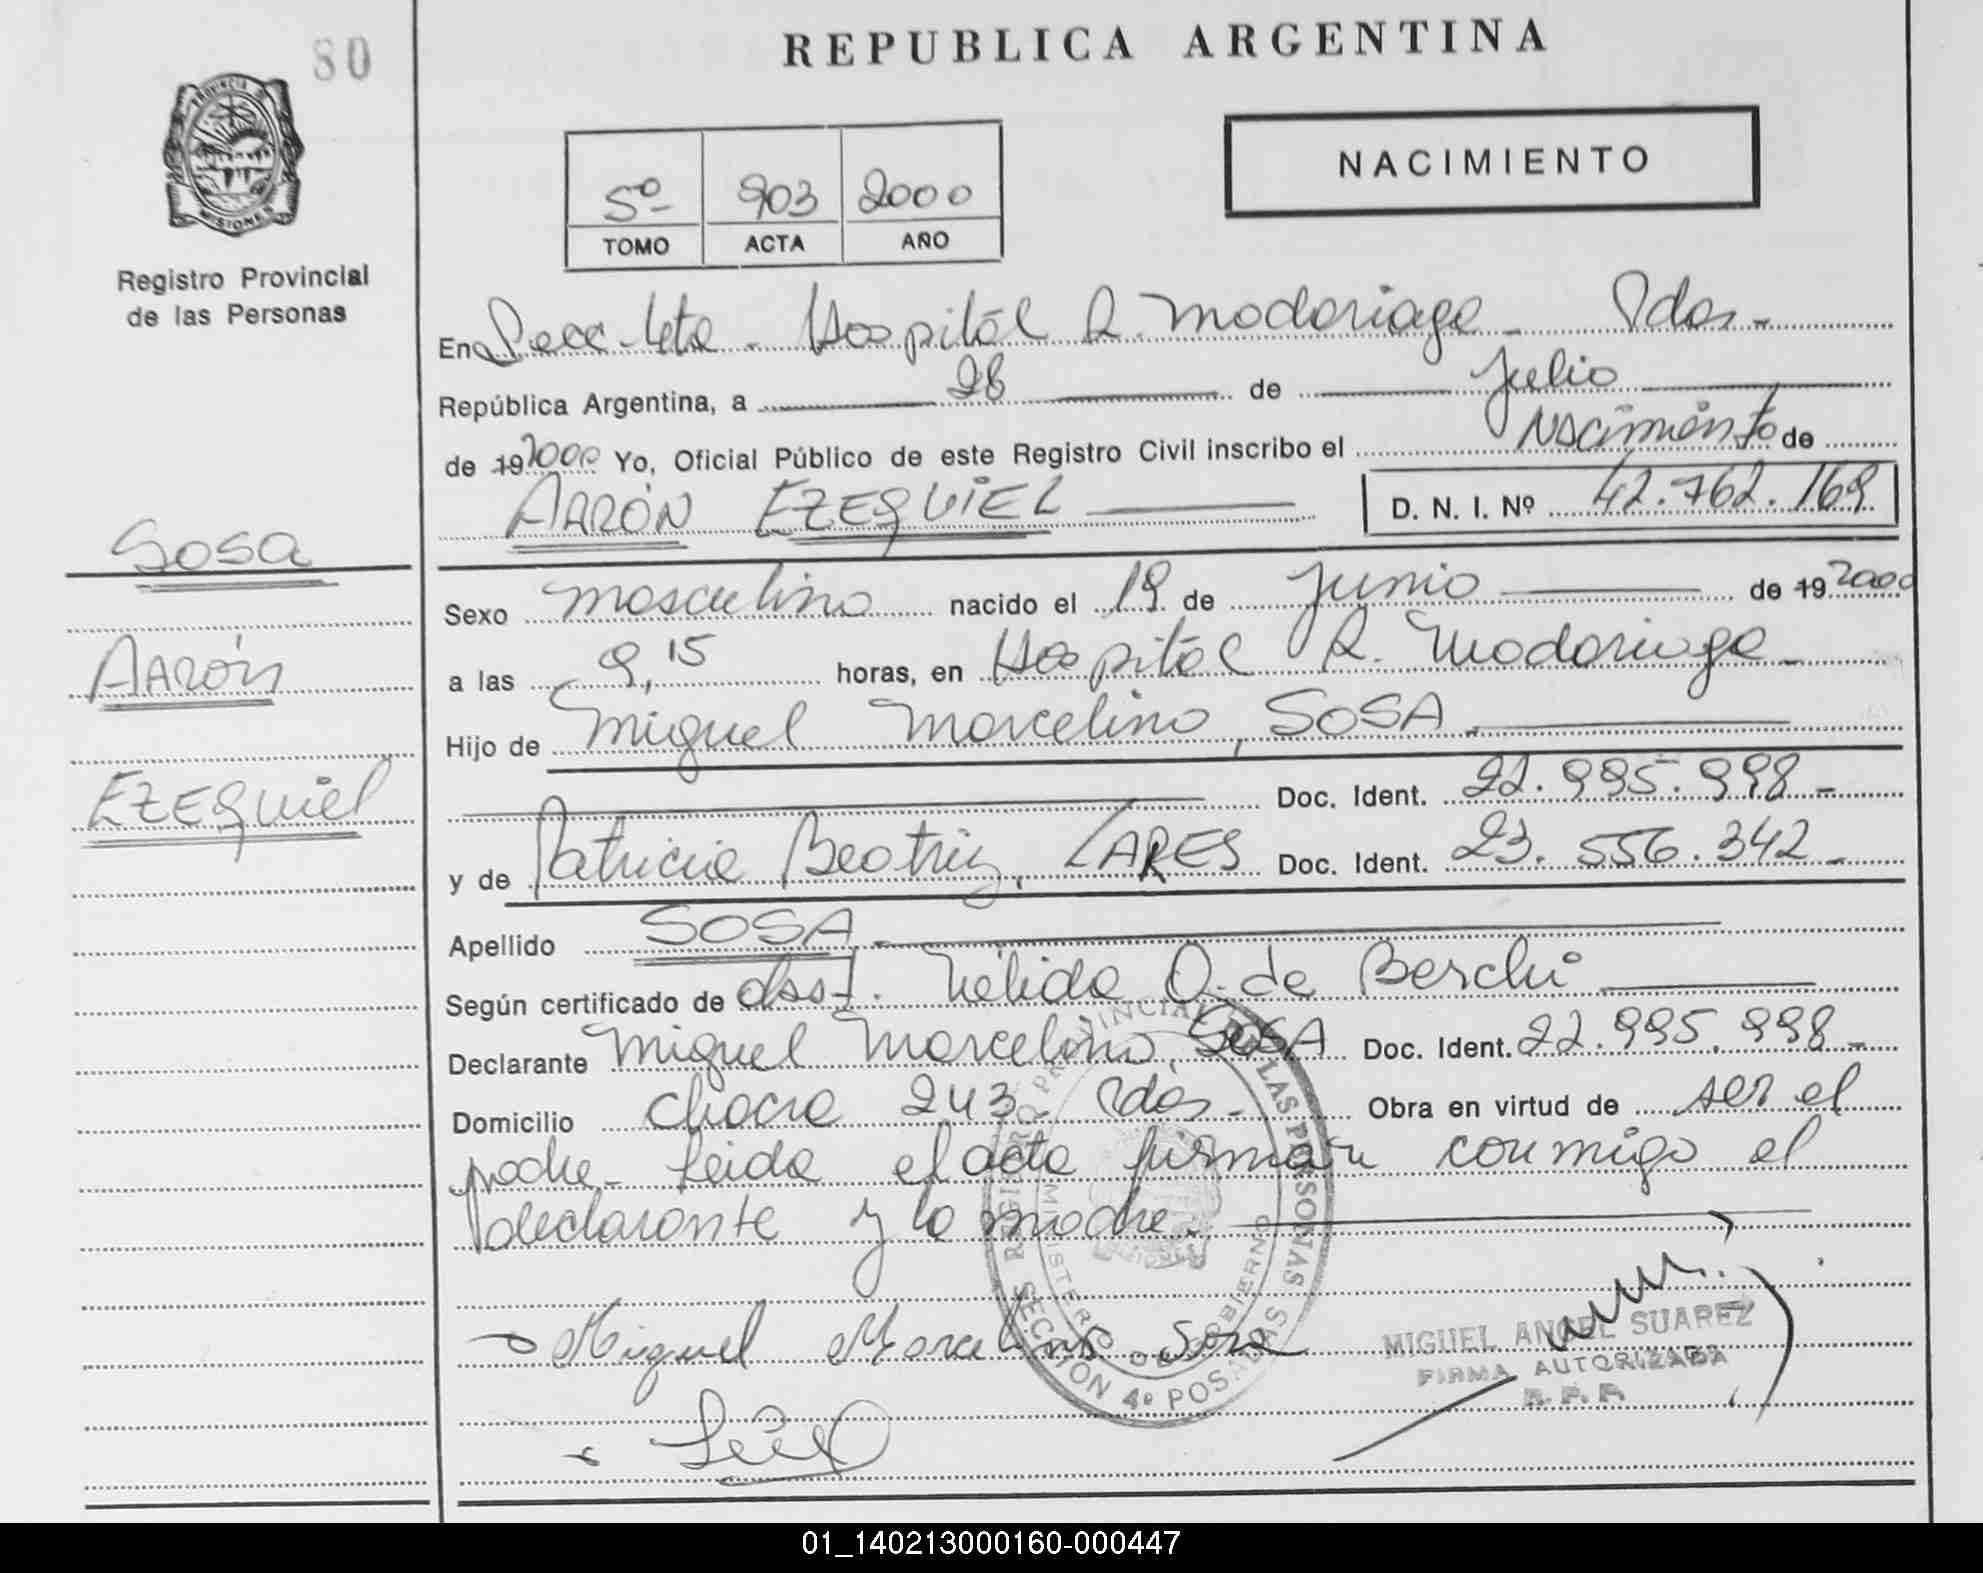 80
REPUBLICA ARGENTINA
PROVINCIA DE
MISIONES
Registro Provincial
de las Personas
NACIMIENTO
5º 903 2000
TOMO ACTA AÑO
En Secc. 4ta - Hospital R. Madariaga - Pdas -
República Argentina, a 28 de Julio
de 19 2000 Yo, Oficial Público de este Registro Civil inscribo el Nacimiento de
AARÓN EZEQUIEL D. N. I. Nº 42.762.169
Sosa
Aarón
Ezequiel
Sexo masculino nacido el 19 de Junio de 19 2000
a las 9,15 horas, en Hospital R. Madariaga -
Hijo de Miguel Marcelino, SOSA -
Doc. Ident. 22.995.998 -
y de Patricia Beatriz, LARES Doc. Ident. 23.556.342 -
Apellido SOSA -
Según certificado de Obst. Nélida O. de Berchi
Declarante Miguel Marcelino, SOSA Doc. Ident. 22.995.998 -
Domicilio Chacra 243 - Pdas - Obra en virtud de ser el
padre - Leida el acta firman conmigo el
declarante y la madre.
Miguel Marcelino Sosa
REGISTRO PROVINCIAL DE LAS PERSONAS
MINISTERIO DE GOBIERNO
SECCION 4º POSADAS
MIGUEL ANGEL SUAREZ
FIRMA AUTORIZADA
R. P. P.
01_140213000160-000447